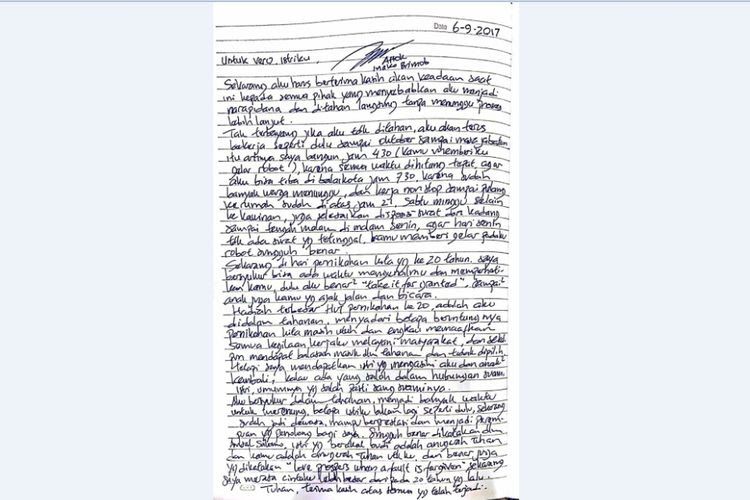 Date 6-9-2017
Untuk vero, istriku
Ahok
Mako Brimob
Sekarang aku harus berterima kasih akan keadaan saat
ini kepada semua pihak yang menyebabkan aku menjadi
narapidana dan ditahan langsung tanpa menunggu proses
lebih lanjut.
Tak terbayang jika aku tdk ditahan, aku akan terus
bekerja seperti dulu sampai oktober sampai masa jabatan
itu artinya saya bangun jam 430 (kamu memberiku
gelar robot), karena semua waktu dihitung tepat, agar
aku bisa tiba di balaikota jam 730, karena sudah
banyak warga menunggu, dan kerja non stop sampai pulang
ke rumah sudah diatas jam 21, sabtu minggu selain
ke kawinan, juga selesaikan disposisi surat dan kadang
sampai tengah malam di malam senin, agar hari senin
tdk ada surat yg tertinggal, kamu memberi gelar padaku
robot sungguh benar.
Sekarang di hari pernikahan kita yg ke 20 tahun. saya
bersyukur bisa ada waktu mengenalmu dan memperhati
kan kamu, dulu aku benar2 "take it for granted". sampai2
anak juga kamu yg ajak jalan dan bicara.
Hadiah terbesar HUT pernikahan ke 20, adalah aku
didalam tahanan, menyadari betapa beruntungnya
pernikahan kita masih utuh dan engkau memaafkan
semua kegilaan kerjaku melayani masyarakat, dan
pun mendapat balasan masuk tahanan dan tidak dipilih
saya mendapatkan istri yg mengasihi aku dan anak2
kembali, kalau ada yang salah dalam hubungan suami
istri, umumnya yg salah pasti sang suaminya.
Aku bersyukur dalam tahanan, menjadi banyak waktu
untuk merenung, betapa istriku bukan lagi seperti dulu, sekarang
sudah jadi dewasa, mampu berprestasi dan menjadi
yg penolong bagi saya. Sungguh benar dikatakan
istri yg berakal budi adalah anugerah Tuhan
dan kamu adalah anugerah Tuhan utkku, dan benar juga
yg dikatakan "love prospers when a fault is forgiven" sekarang
saya merasa cintaku lebih besar daripada 20 tahun yg lalu
Tuhan, terima kasih atas semua yg telah terjadi.